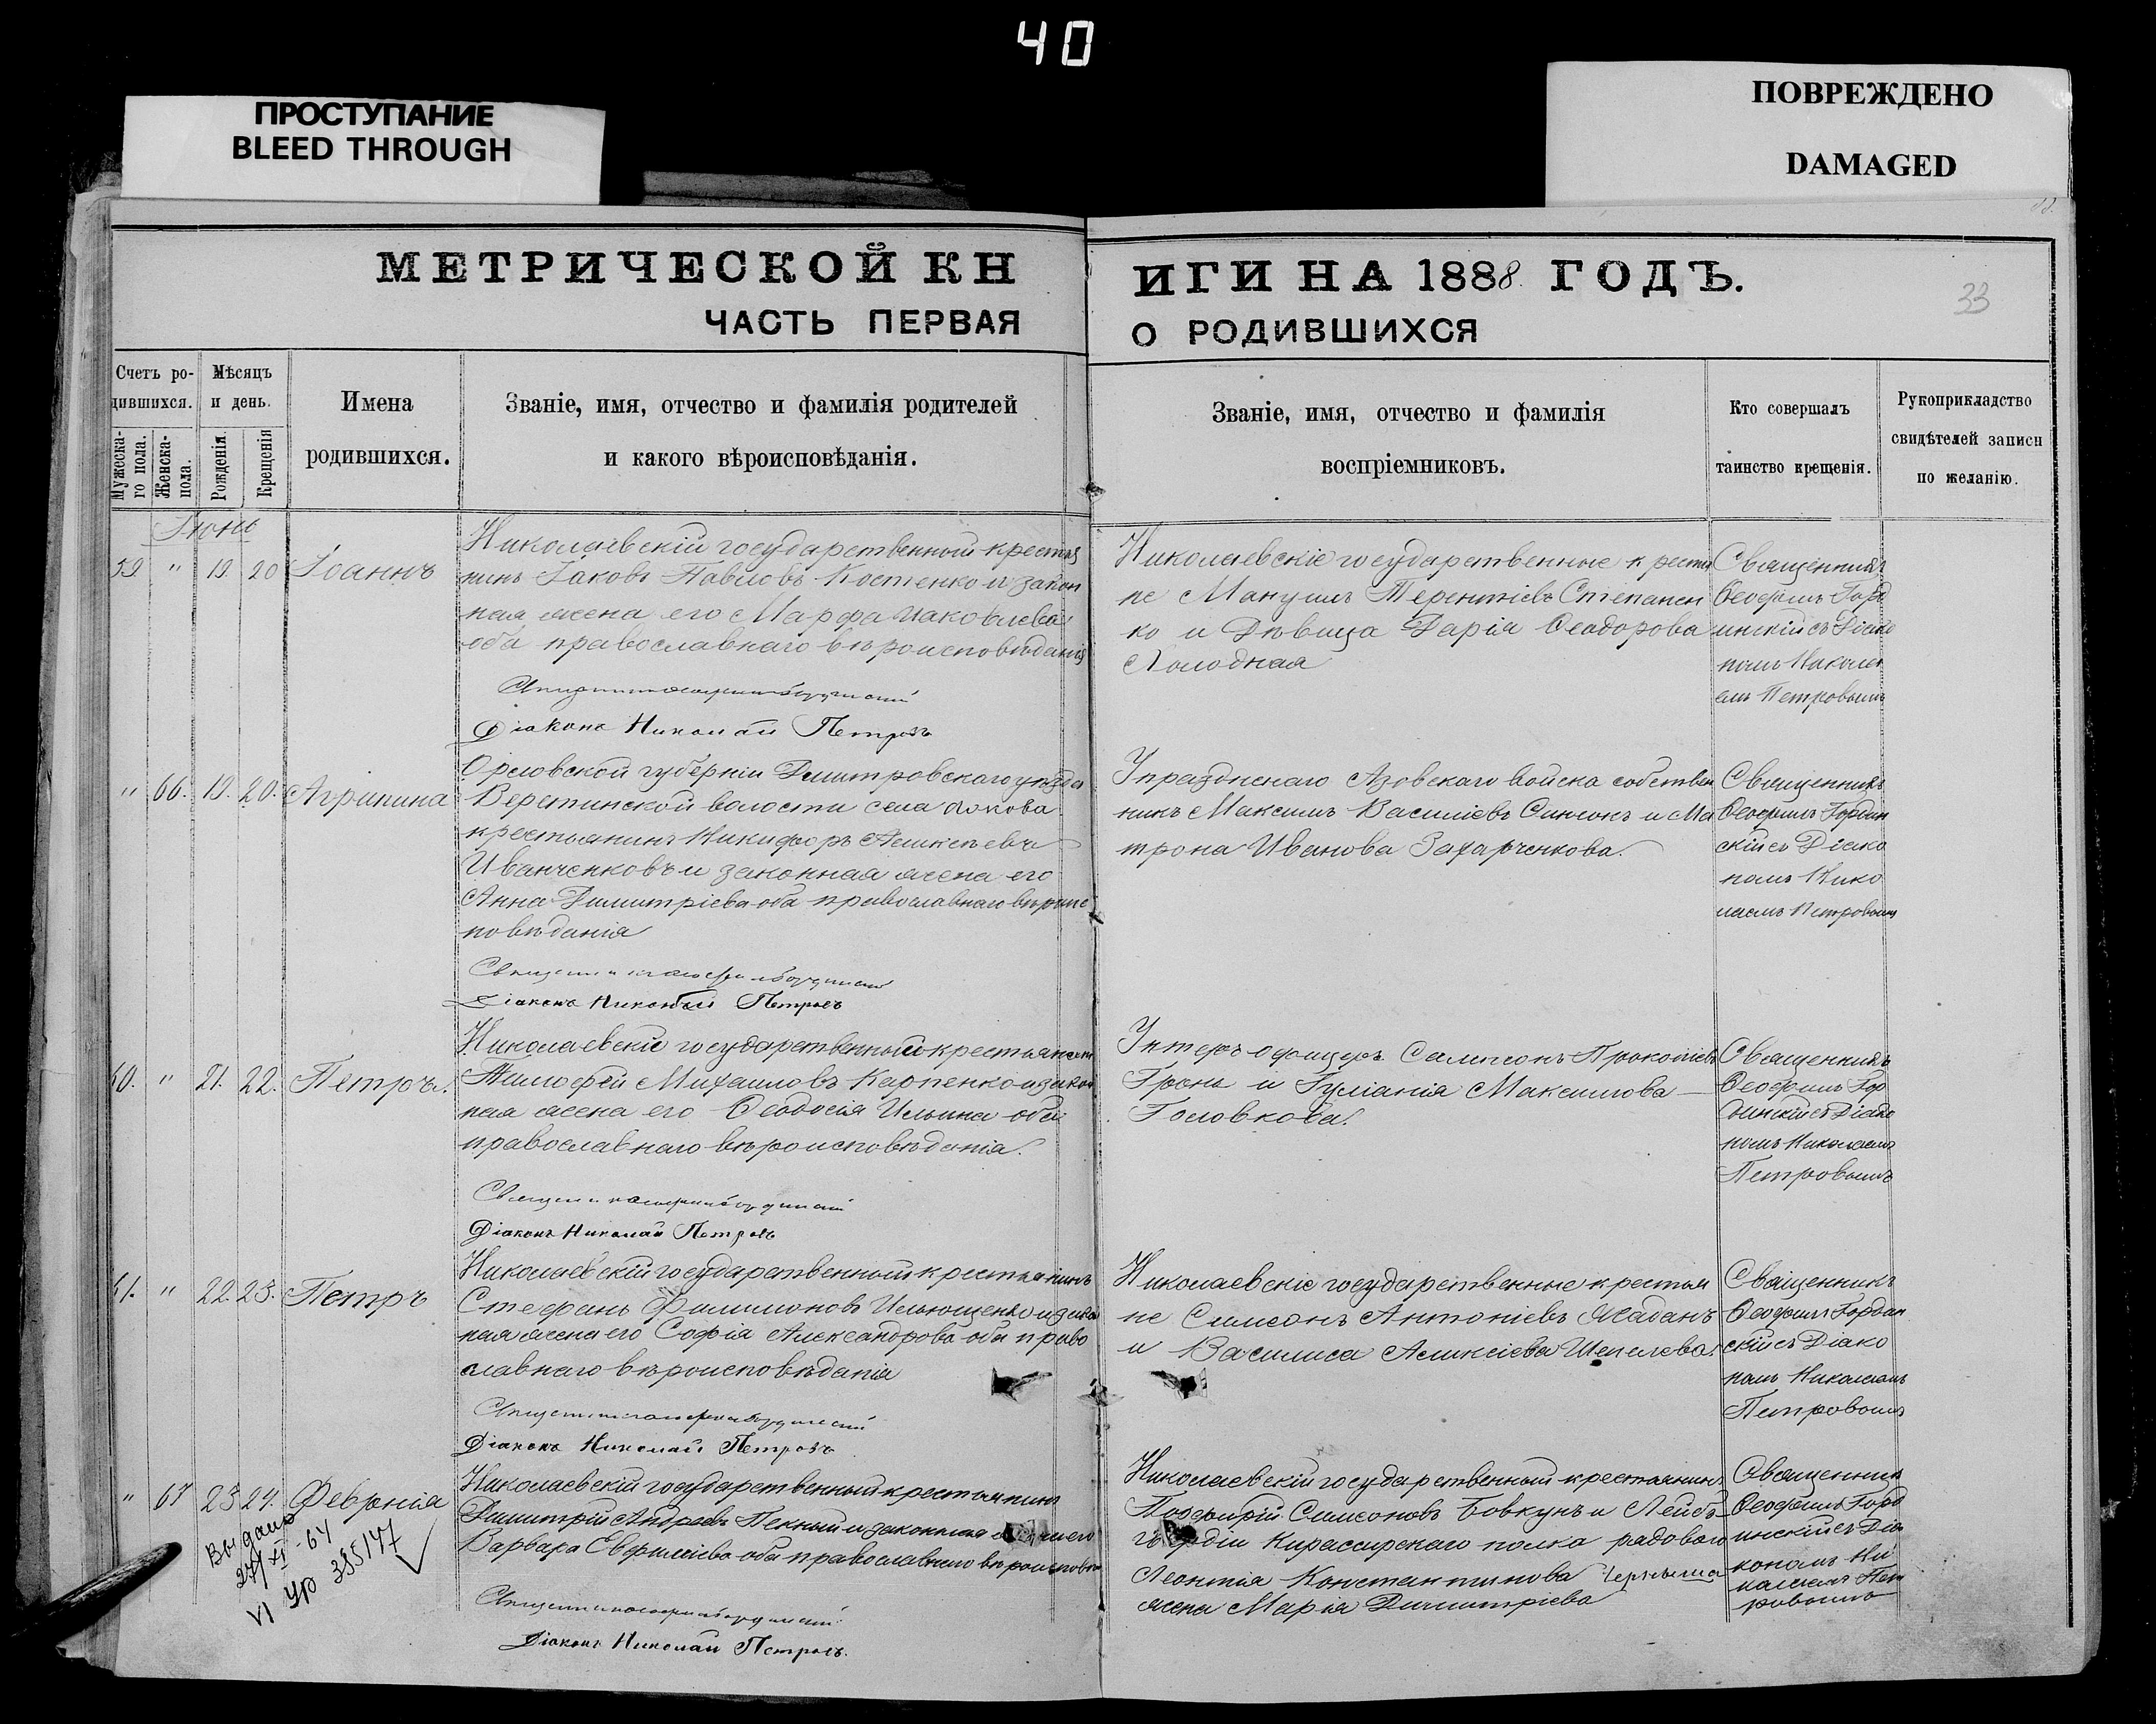 40
ПРОСТУПАНИЕ
BLEED THROUGH
ПОВРЕЖДЕНО
DAMAGED
МЕТРИЧЕСКОЙ КН
ИГИ НА 1888 ГОДЪ.
33
ЧАСТЬ ПЕРВАЯ
О РОДИВШИХСЯ
Счетъ ро-
дившихся.
Мужеска-
го пола.
Женска-
пола.
Мѣсяцъ
и день.
Рожденія.
Крещенія
Имена
родившихся.
Званіе, имя, отчество и фамилія родителей
и какого вѣроисповѣданія.
Званіе, имя, отчество и фамилія
воспріемниковъ.
Кто совершалъ
таинство крещенія.
Рукоприкладство
свидѣтелей записи
по желанію.
Іюнь
59. " 19. 20 Іоаннъ
Николаевскій государственный крестья
нинъ Іаковъ Павловъ Костенко и закон
ная жена его Марфа Іаковлева
оба православнаго вѣроисповѣданія
Діаконъ Николай Петровъ
Николаевскіе государственные крестья
не Мануилъ Терентіевъ Степанен
ко и Дѣвица Дарія Ѳеодорова
Холодная
Священникъ
Ѳеофилъ Горд
инскій съ Діако
номъ Никола
емъ Петровымъ
" 66. 19. 20. Агрипина
Орловской губерніи Дмитровскаго уѣзда
Веретинской волости села
крестьянинъ Никифоръ Алексѣевъ
Иванченковъ и законная жена его
Анна Димитріева оба православнаго вѣроис
повѣданія
Діаконъ Николай Петровъ
Упраздненаго Азовскаго войска собствен
никъ Максимъ Василіевъ Синюкъ и Ма
трона Иванова Захарченкова.
Священникъ
Ѳеофилъ Гордин
скій съ Діако
номъ Нико
лаемъ Петровымъ
60. " 21. 22. Петръ.
Николаевскій государственный крестьянинъ
Тимофей Михаиловъ Карпенко и закон
ная жена его Ѳеодосія Ильина оба
православнаго вѣроисповѣданія.
Діаконъ Николай Петровъ
Унтеръ офицеръ Сампсонъ Прокопіевъ
Гронь и Гуліанія Максимова
Головкова.
Священникъ
Ѳеофилъ Гор
динскій съ Діако
номъ Николаемъ
Петровымъ
61. " 22. 23. Петръ
Николаевскій государственный крестьянинъ
Стефанъ Филимоновъ Ильющенко и закон
ная жена его Софія Александрова оба право
славнаго вѣроисповѣданія
Діаконъ Николай Петровъ
Николаевскіе государственные крестья
не Симеонъ Антоніевъ Жаданъ
и Василиса Алексіева Шепелева.
Священникъ
Ѳеофилъ Гордин
скій съ Діако
номъ Николаемъ
Петровымъ
" 67 23 24. Февронія
Николаевскій государственный крестьянинъ
Димитрій Андреевъ Пекный и законная жена его
Варвара Евфиміева оба православнаго вѣроисповѣд
Діаконъ Николай Петровъ.
Николаевскій государственный крестьянинъ
Порфирій Симеоновъ Бовкунъ и Лейбъ
гвардіи Кирасирскаго полка рядоваго
Леонтія Константинова Черныша
жена Марія Димитріева
Священникъ
Ѳеофилъ Горд
инскій съ Діа
кономъ Ни
колаемъ Пет
ровымъ
Выдано
27/XI-64
VI УР 395147